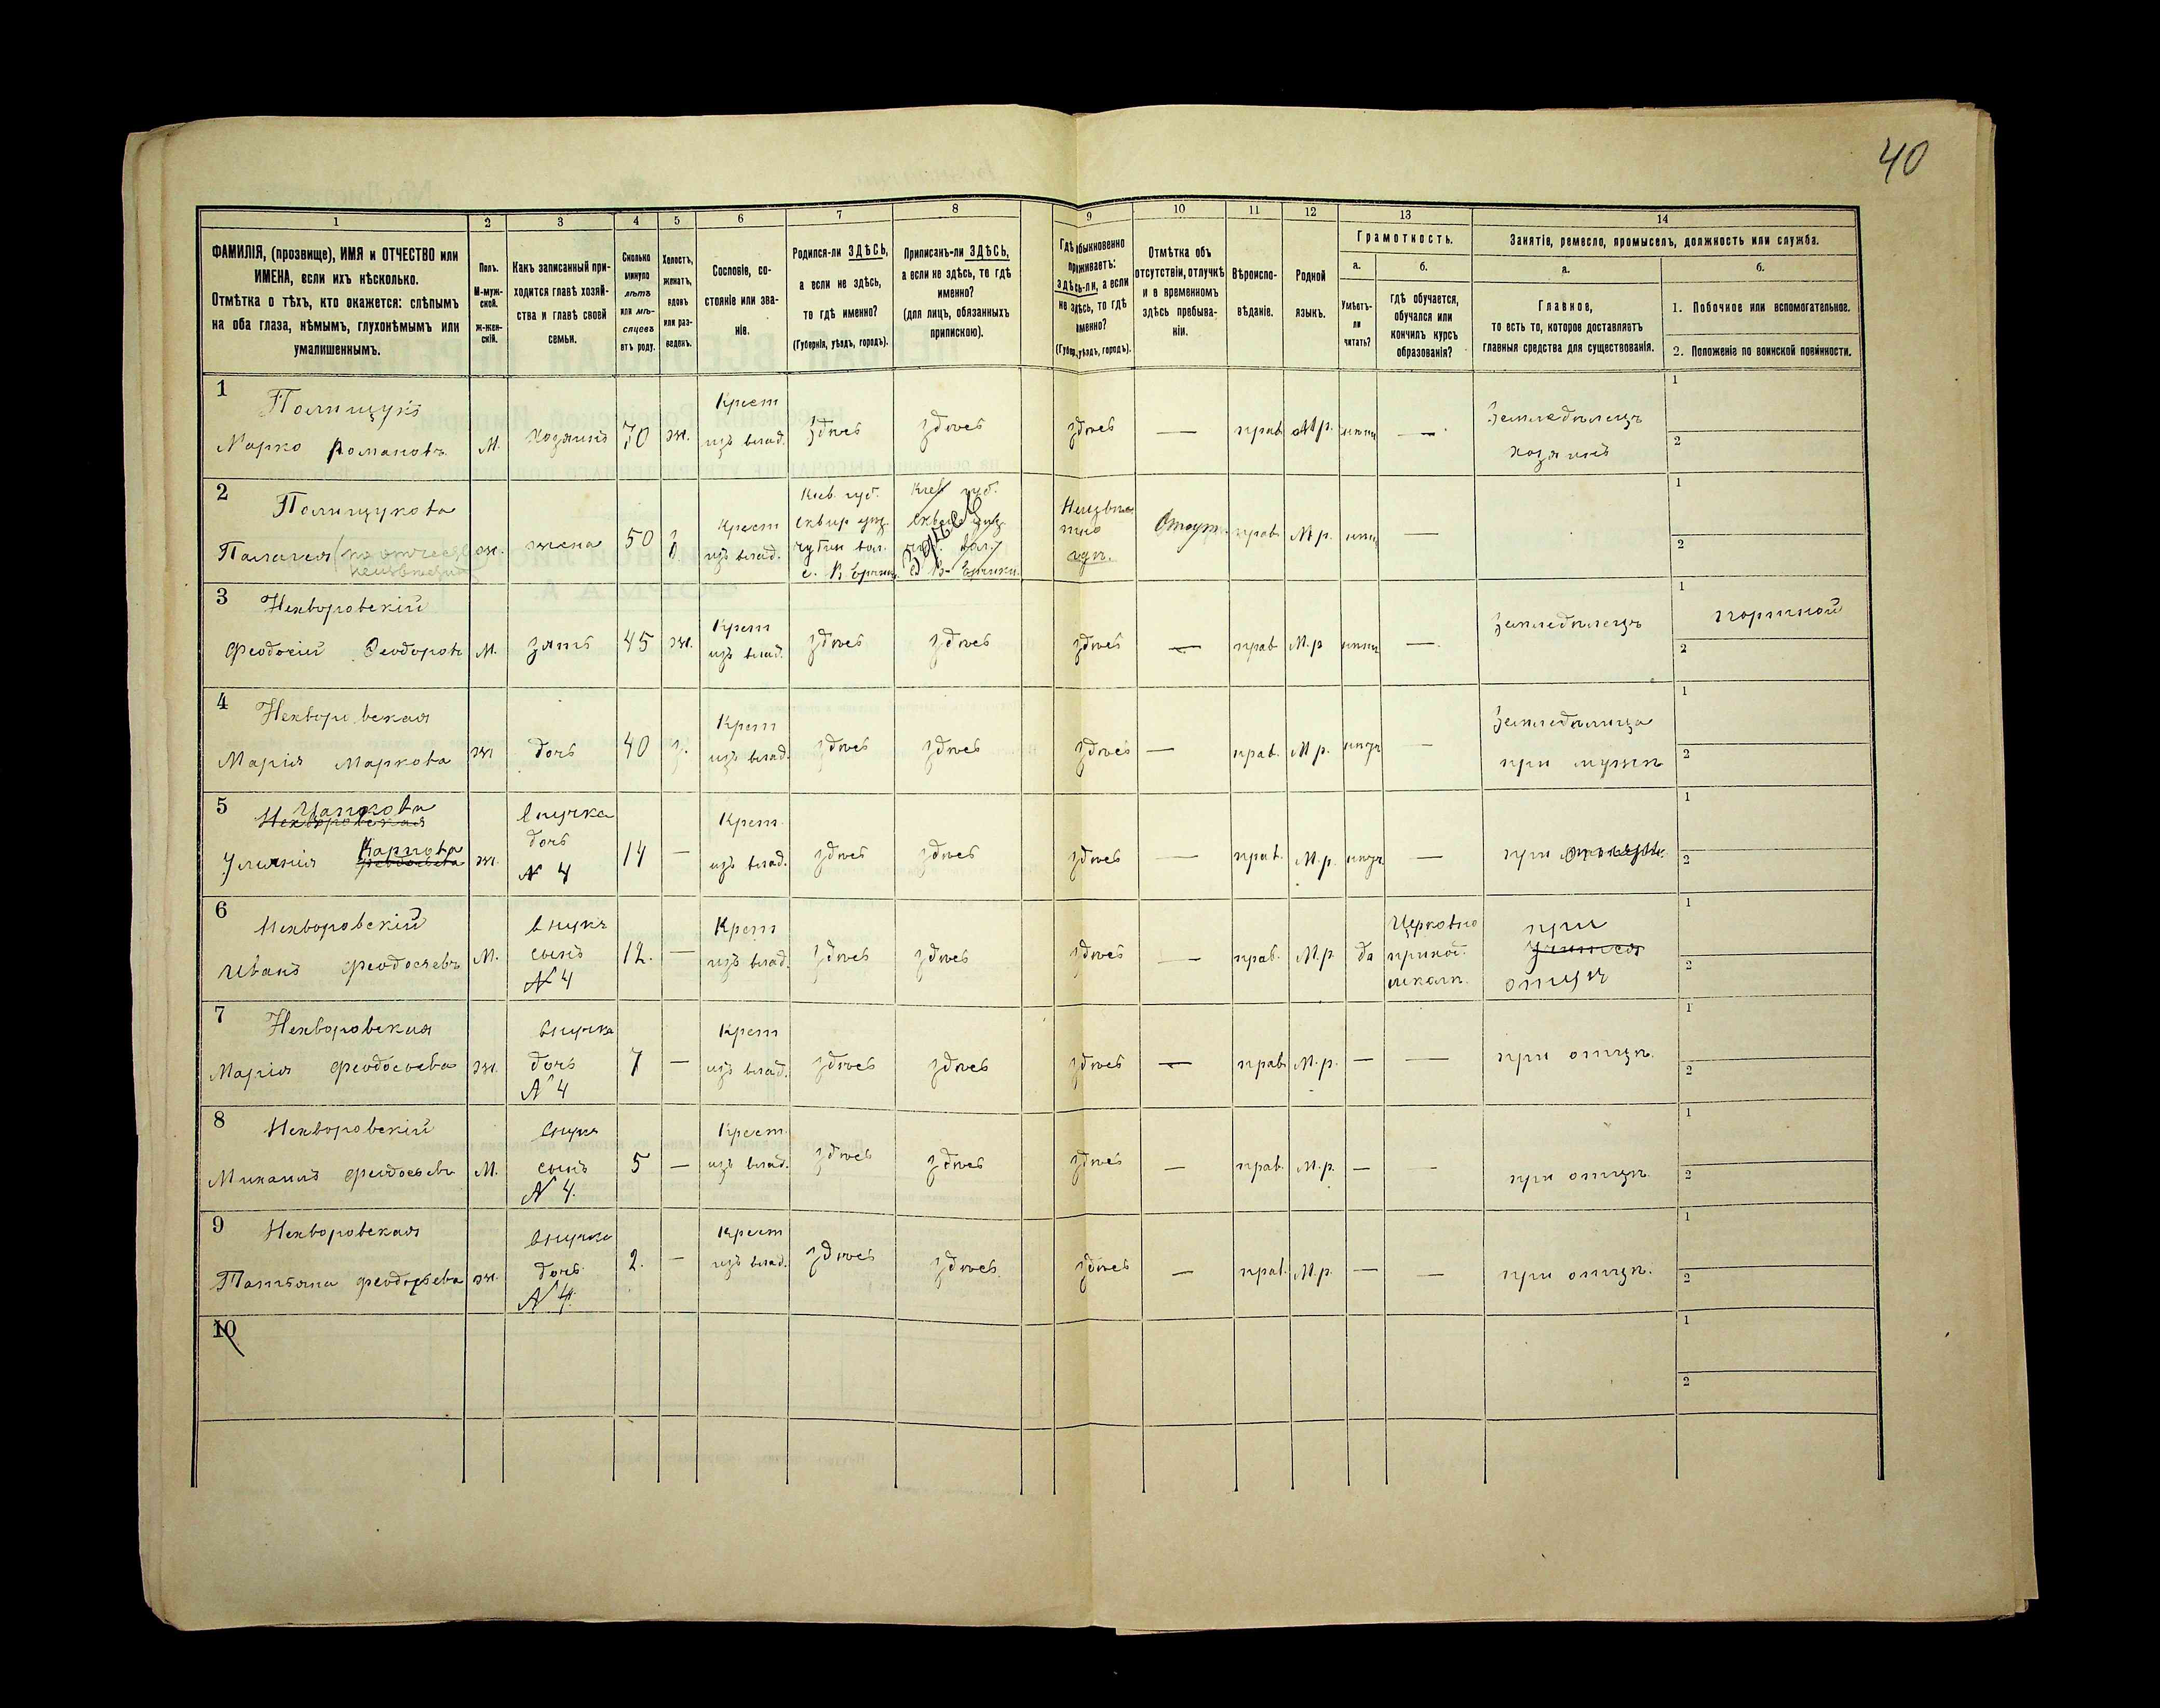 40
1 2 3 4 5 6 7 8 9 10 11 12 13 14
ФАМИЛІЯ, (прозвище), ИМЯ и ОТЧЕСТВО или
ИМЕНА, если ихъ нѣсколько.
Отмѣтка о тѣхъ, кто окажется: слѣпымъ
на оба глаза, нѣмымъ, глухонѣмымъ или
умалишеннымъ.
Полъ.
М-муж-
ской.
ж-жен-
скій.
Какъ записанный при-
ходится главѣ хозяй-
ства и главѣ своей
семьи.
Сколько
минуло
лѣтъ
или мѣ-
сяцевъ
отъ роду.
Холостъ,
женатъ,
вдовъ
или раз-
веденъ.
Сословіе, со-
стояніе или зва-
ніе.
Родился-ли ЗДѢСЬ,
а если не здѣсь,
то гдѣ именно?
(Губернія, уѣздъ, городъ).
Приписанъ-ли ЗДѢСЬ,
а если не здѣсь, то гдѣ
именно?
(для лицъ, обязанныхъ
припискою).
Гдѣ обыкновенно
проживаетъ:
здѣсь-ли, а если
не здѣсь, то гдѣ
именно?
(Губер., уѣздъ, городъ).
Отмѣтка объ
отсутствіи, отлучкѣ
и о временномъ
здѣсь пребыва-
ніи.
Вѣроиспо-
вѣданіе.
Родной
языкъ.
Грамотность.
а.
Умѣетъ-
ли
читать?
б.
гдѣ обучается,
обучался или
кончилъ курсъ
образованія?
Занятіе, ремесло, промыселъ, должность или служба.
а.
Главное,
то есть то, которое доставляетъ
главныя средства для существованія.
б.
1. Побочное или вспомогательное.
2. Положеніе по воинской повинности.
1 Полищукъ
Марко Романовъ М. хозяинъ 70 ж. Крест изъ влад. здѣсь здѣсь здѣсь — прав. М.р. — Земледѣлецъ хозяинъ 1 2
2 Полищукова
Палагея ж. жена 50 з. Крест изъ влад. Кіев. губ. Сквир уѣз. вол. с. В Ерчики Кіев губ. Здѣсь В- Ерчики Отсут. прав. М.р. — 1 2
3 Нехворовскій
Феодосій Феодоровъ М. зять 45 ж. Крест изъ влад. здѣсь здѣсь здѣсь — прав М.р — Земледѣлецъ 1 портной 2
4 Нехворовская
Марія Маркова ж дочь 40 з. Крест изъ влад. здѣсь здѣсь здѣсь — прав. М.р. — Земледѣлица при мужѣ 1 2
5 Нехворовская
Карпова ж. внучка дочь № 4 14 — Крест изъ влад. здѣсь здѣсь здѣсь — прав. М.р. — при 1 2
6 Нехворовскій
Иванъ Феодосіевъ М. внукъ сынъ № 4 12. — Крест изъ влад. здѣсь здѣсь здѣсь — прав. М.р. да Церковно приход. школѣ при учится отцѣ 1 2
7 Нехворовская
Марія Феодосіева ж. внучка дочь № 4 7 — Крест изъ влад. здѣсь здѣсь здѣсь — прав. М.р. — — при отцѣ. 1 2
8 Нехворовскій
Михаилъ Феодосіевъ М. внукъ сынъ № 4. 5 — Крест изъ влад. здѣсь здѣсь здѣсь — прав. М.р. — — при отцѣ. 1 2
9 Нехворовская
Татьяна Феодосіева ж. внучка дочь № 4. 2. — Крест изъ влад. здѣсь здѣсь здѣсь — прав. М.р. — — при отцѣ. 1 2
10 1 2